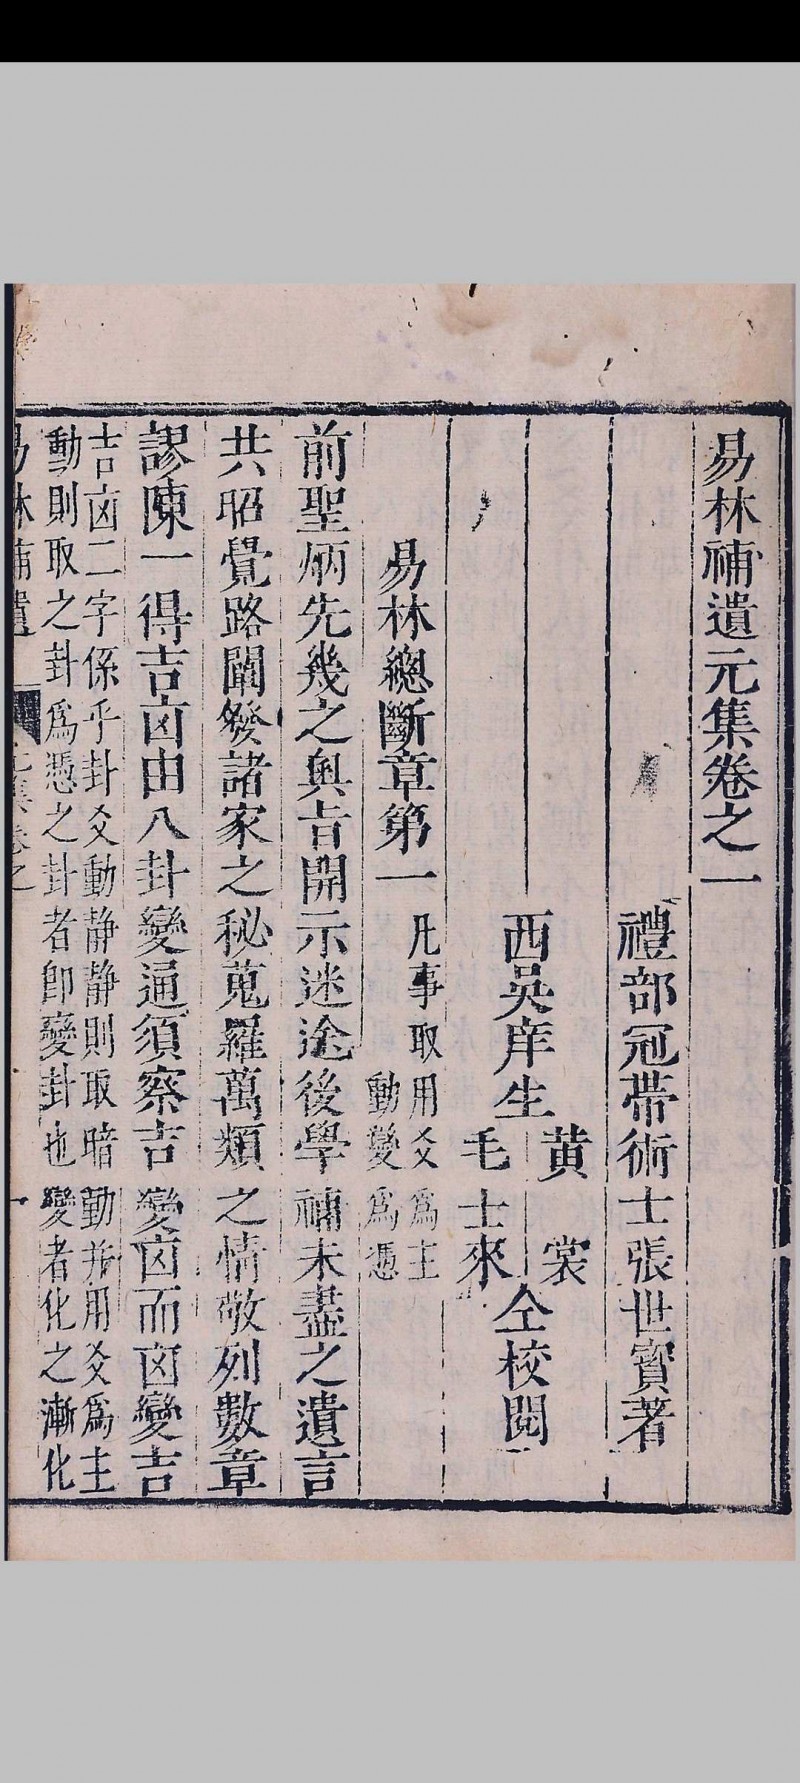 易林補遺元集卷之一
禮部冠帶術士張世寶著
西吳庠生
黃裳
毛士來
仝校閱
易林總斷章第一
凡事取用爻爲主
動變爲憑
前聖炳先幾之奥旨開示迷途後學補未盡之遺言
共昭覺路闡發諸家之秘蒐羅萬類之情敬列數章
謬陳一得吉凶由八卦變通須察吉變凶而凶變吉
吉凶二字係乎卦爻動静静則取暗動并用爻爲主
動則取之卦爲憑之卦者卽變卦也變者化之漸化
易林補遺
元集卷之一